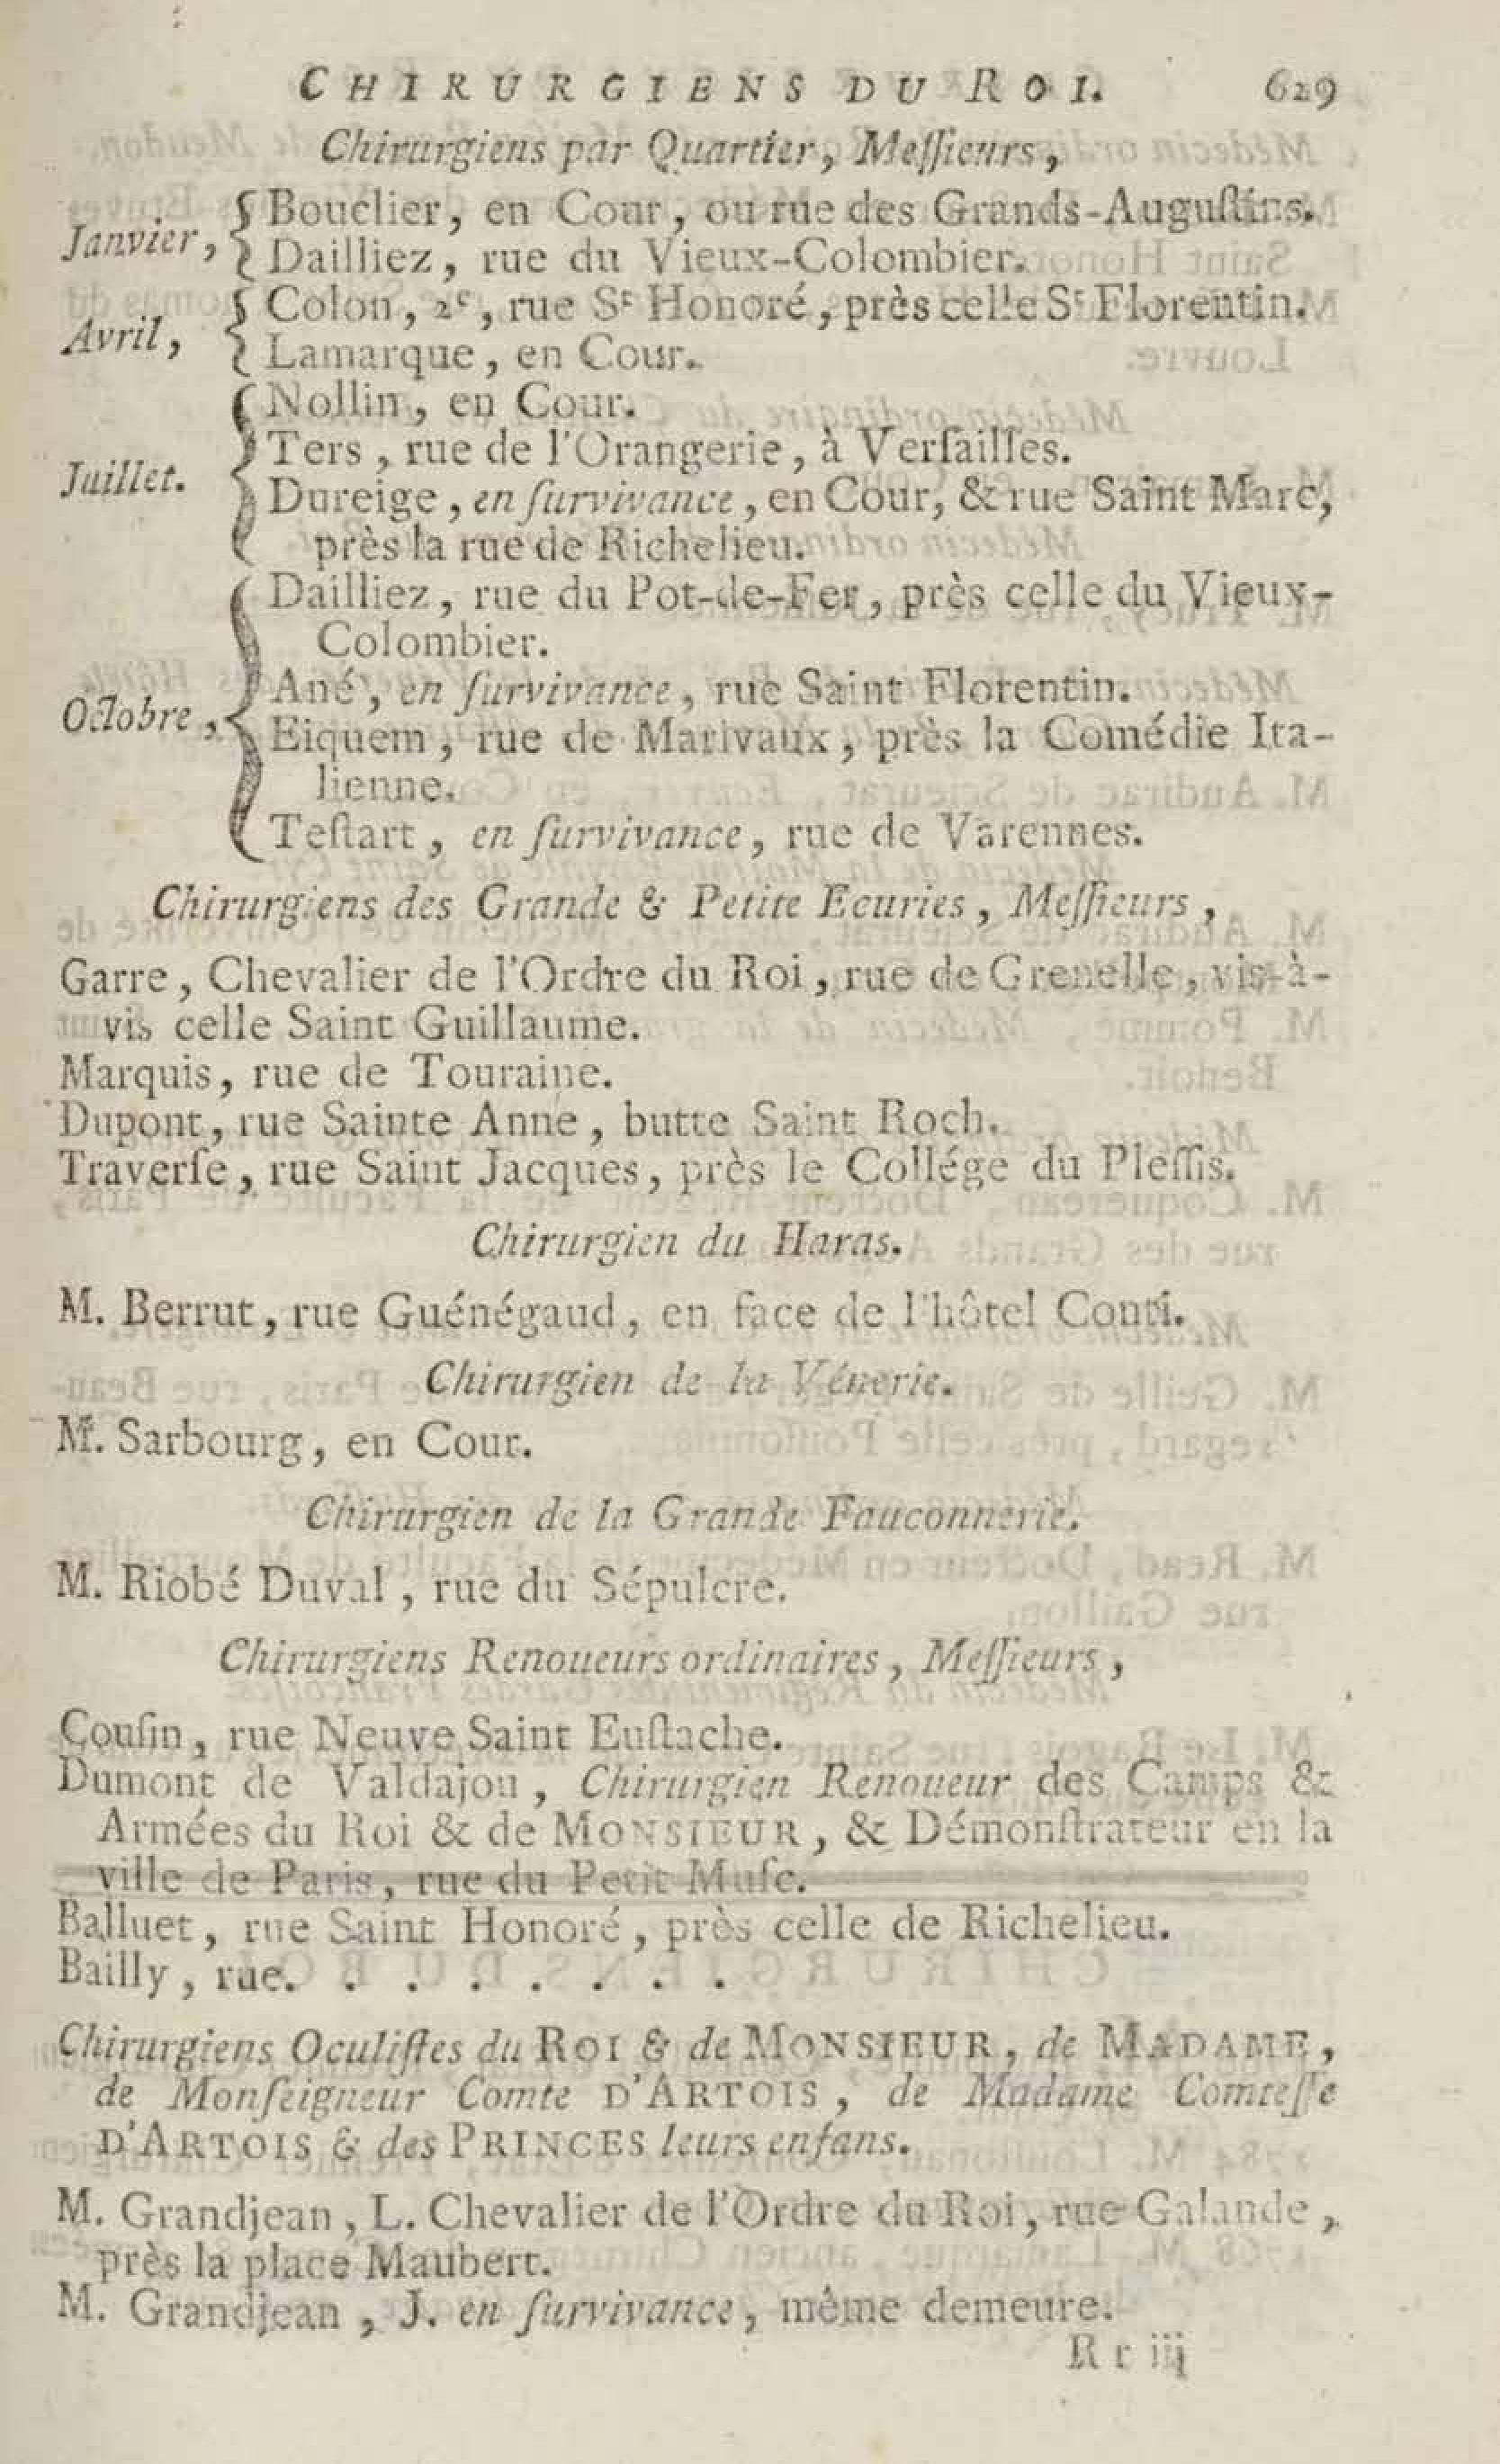 CHIRURGIENS DU ROI. 629
Chirurgiens par Quartier, Meſſieurs,
Janvier, { Bouclier, en Cour, ou rue des Grands-Auguſtins.
Dailliez, rue du Vieux-Colombier.
Avril, { Colon, 2e, rue St Honoré, près celle St Florentin.
Lamarque, en Cour.
Juillet. { Nollin, en Cour.
Ters, rue de l'Orangerie, à Verſailles.
Dureige, en ſurvivance, en Cour, & rue Saint Marc,
près la rue de Richelieu.
Octobre, { Dailliez, rue du Pot-de-Fer, près celle du Vieux-
Colombier.
Ané, en ſurvivance, rue Saint Florentin.
Eiquem, rue de Marivaux, près la Comédie Ita-
lienne.
Teſtart, en ſurvivance, rue de Varennes.
Chirurgiens des Grande & Petite Ecuries, Meſſieurs,
Garre, Chevalier de l'Ordre du Roi, rue de Grenelle, vis-à-
vis celle Saint Guillaume.
Marquis, rue de Touraine.
Dupont, rue Sainte Anne, butte Saint Roch.
Traverſe, rue Saint Jacques, près le Collége du Pleſſis.
Chirurgien du Haras.
M. Berrut, rue Guénégaud, en face de l'hôtel Conti.
Chirurgien de la Vénerie.
M. Sarbourg, en Cour.
Chirurgien de la Grande Fauconnerie.
M. Riobé Duval, rue du Sépulcre.
Chirurgiens Renoueurs ordinaires, Meſſieurs,
Couſin, rue Neuve Saint Euſtache.
Dumont de Valdajou, Chirurgien Renoueur des Camps &
Armées du Roi & de MONSIEUR, & Démonſtrateur en la
ville de Paris, rue du Petit Muſc.
Balluet, rue Saint Honoré, près celle de Richelieu.
Bailly, rue. . . . . . . .
Chirurgiens Oculiſtes du ROI & de MONSIEUR, de MADAME,
de Monſeigneur Comte D'ARTOIS, de Madame Comteſſe
D'ARTOIS & des PRINCES leurs enfans.
M. Grandjean, L. Chevalier de l'Ordre du Roi, rue Galande,
près la place Maubert.
M. Grandjean, J. en ſurvivance, même demeure.
Rr iij